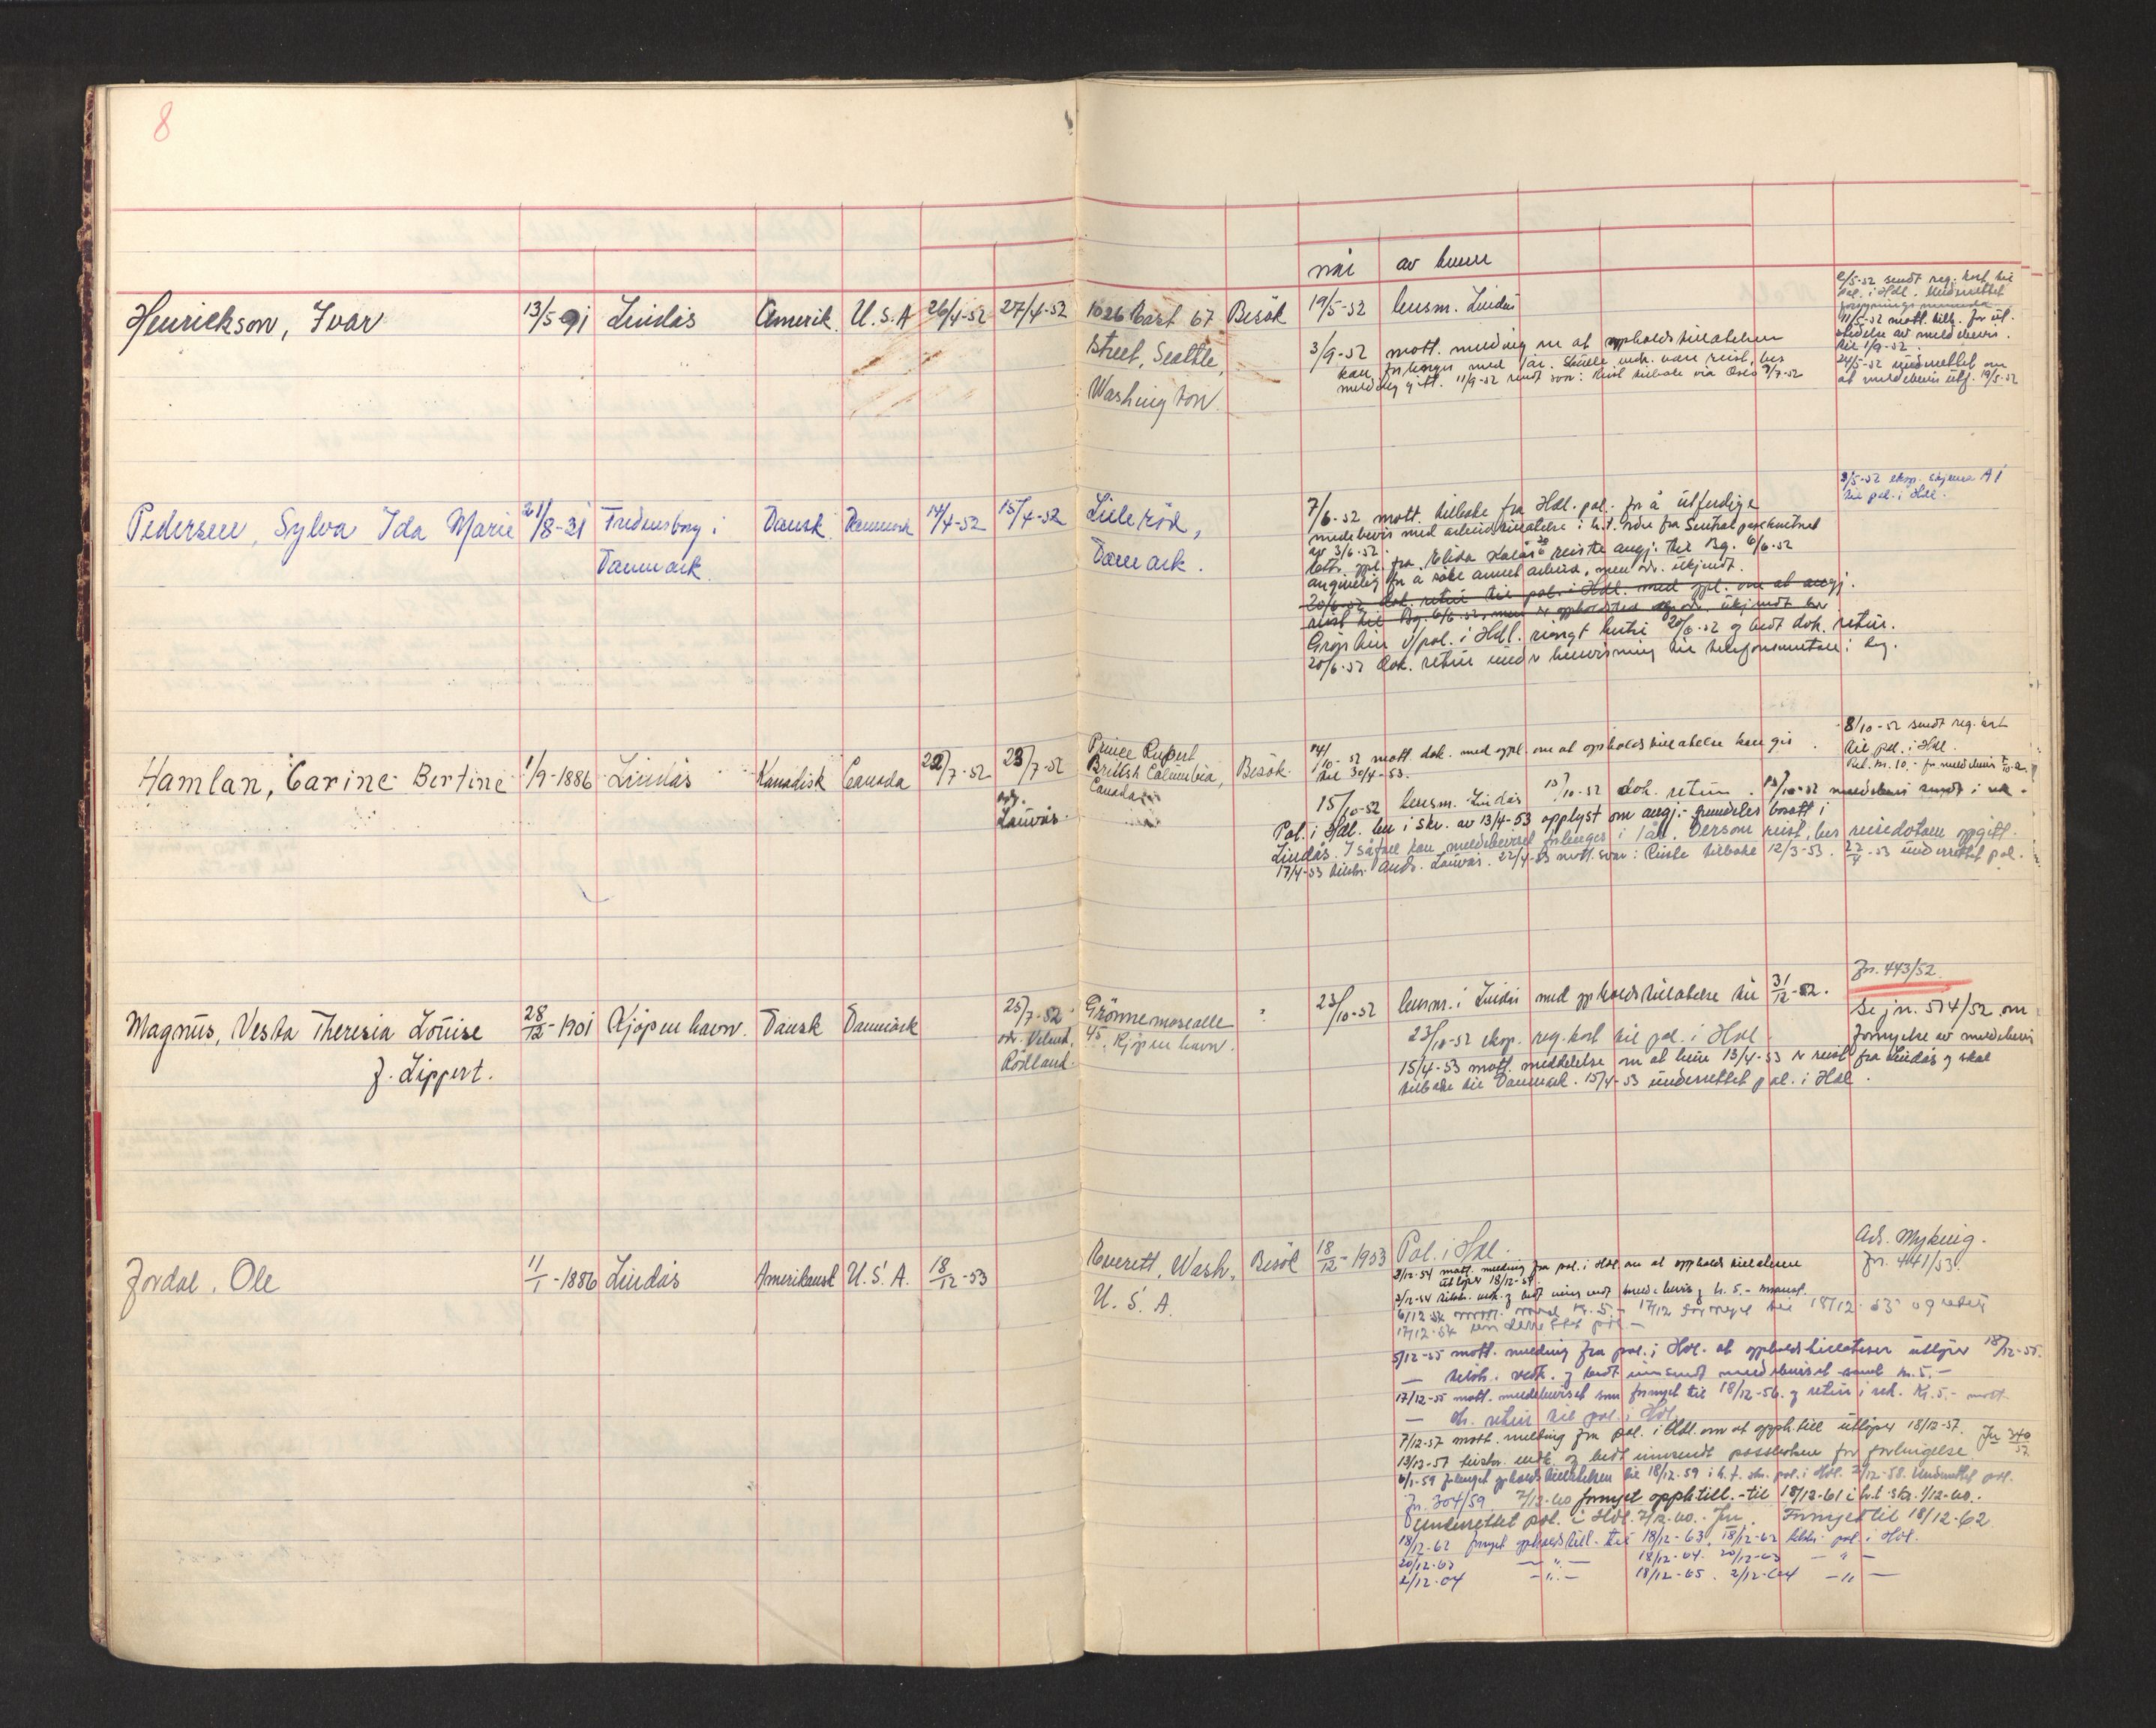 8
når av hvem
Henrickson, Ivar 13/5-91 Lindås Amerik. U.S.A 26/4-52 27/4-52 1026 East 67 Besök 19/5-52 lensm. Lindås
Street, Seattle,
Washington
2/5-52 sendt reg. kort til
pol. i Hdl. Underrettet
11/5-52 mott. till. for ut-
stedelse av meldebevis
til 1/9-52.
24/5-52 underrettet om
at meldebevis utf. 19/5-52
3/9-52 mott. melding om at oppholdstillatelsen
kan forlenges med 1 år. Skulle vedk. være reist, bes
melding gitt. 11/9-52 sendt svar: Reist tilbake via Oslo 9/7-52
Pedersen, Sylva Ida Marie 21/8-31 Fredensborg i Dansk Danmark 14/4-52 15/4-52 Lille röd,
Danmark Danmark.
8/5-52 eksp. skjema A 1
til pol. i Hdl.
7/6-52 mott. tilbake fra Hdl. pol. for å utferdige
meldebevis med arbeidstillatelse i h.t. ordre fra Sentralpasskontoret
av 3/6-52.
reiste angj. til Bg. 6/6-52
angivelig for å söke annet arbeid, men adr. ukjendt.
20/6-52 dok. retur til pol. i Hdl. med oppl. om at angj.
reist til Bg. 6/6-52, men er oppholdsted og adr. ukjendt her
v/pol. i Hdl. ringt hertil 20/6-52 og bedt dok. retur.
20/6-52 dok. retur under henvisning til telefonsamtale i dag.
Hamlan, Carine Bertine 1/9-1886 Lindås Kanadisk Canada 22/7-52 23/7-52 Prince Rupert Besök
British Columbia,
Canada
Lauvås
14/10-52 mott. dok. med oppl. om at oppholdstillatelse kan gis
til 30/4-53.
8/10-52 sendt reg. kort
til pol. i Hdl.
15/10-52 lensm. Lindås 15/10-52 dok. retur. 15/10-52 meldebevis sendt i rek.
Pol. i Hdl. har i skr. av 13/4-53 opplyst om angj. fremdeles bosatt i
Lindås. I såfall kan meldebeviset forlenges i 1 år. Dersom reist, bes reisedatoen oppgitt.
17/4-53 tilskr. Andr. Lauvås. 22/4-53 mott. svar: Reiste tilbake 12/3-53. 22/4-53 underrettet pol.
Magnus, Vesta Theresia Louise 28/12-1901 Kjöpenhavn. Dansk Danmark 25/7-52 Grönnemosealle 23/10-52 lensm. i Lindås med oppholdstillatelse til 31/12-52.
f. Lippert.
Röslland
45, Kjöpenhavn.
Jn. 443/52
Se jn. 574/52 om
fornyelse av meldebevis
23/10-52 eksp. reg. kort til pol. i Hdl
15/4-53 mott. meddelelse om at hun 13/4-53 er reist fra Lindås og skal
tilbake til Danmark. 15/4-53 underrettet pol. i Hdl.
Jordal, Ole 11/1-1886 Lindås Amerikansk U.S.A. 18/12-53 Everett, Wash. Besök 18/12-1953 Pol. i Hdl.
U.S.A.
Adr. Myking.
Jn. 441/53.
2/12-54 mott. melding fra pol. i Hdl om at oppholdstillatelsen
utlöper 18/12-54.
2/12-54 tilskr. vedk. og bedt innsendt meldebevis og kr. 5.-
6/12-54 mott. kr. 5.- 17/12 fornyet til 18/12-55 og retur
17/12-54 underrettet pol.
5/12-55 mott. melding fra pol. i Hdl. at oppholdstillatelsen utlöper 18/12-55.
— tilskr. vedk. og bedt innsendt meldebeviset samt kr. 5.-
17/12-55 mott. meldebeviset som fornyet til 18/12-56 og retur i rek. Kr. 5.- mott
— dk. retur til pol. i Hdl.
7/12-57 mott. melding fra pol. i Hdl. om at opph.till utlöper 18/12-57. Jn 340/57
13/12-57 tilskr. vedk. og bedt innsendt passboken for forlengelse
6/1-59 forlenget oppholdstillatelsen til 18/12-59 i h.t. skr. pol. i Hdl. 2/12-58. Underrettet pol.
Jn. 304/59. 7/12-60 fornyet opph.till. til 18/12-61 i h.t. skr. 1/12-60.
Underrettet pol. i Hdl. 7/12-60. Fornyet til 18/12-62
18/12-62 fornyet oppholdstill. til 18/12-63, 18/12-62 tilskr. pol. i Hdl.
20/12-63 — " — 18/12-64. 20/12-63 — " —
2/12-64 — " — 18/12-65. 2/12-64 — " —